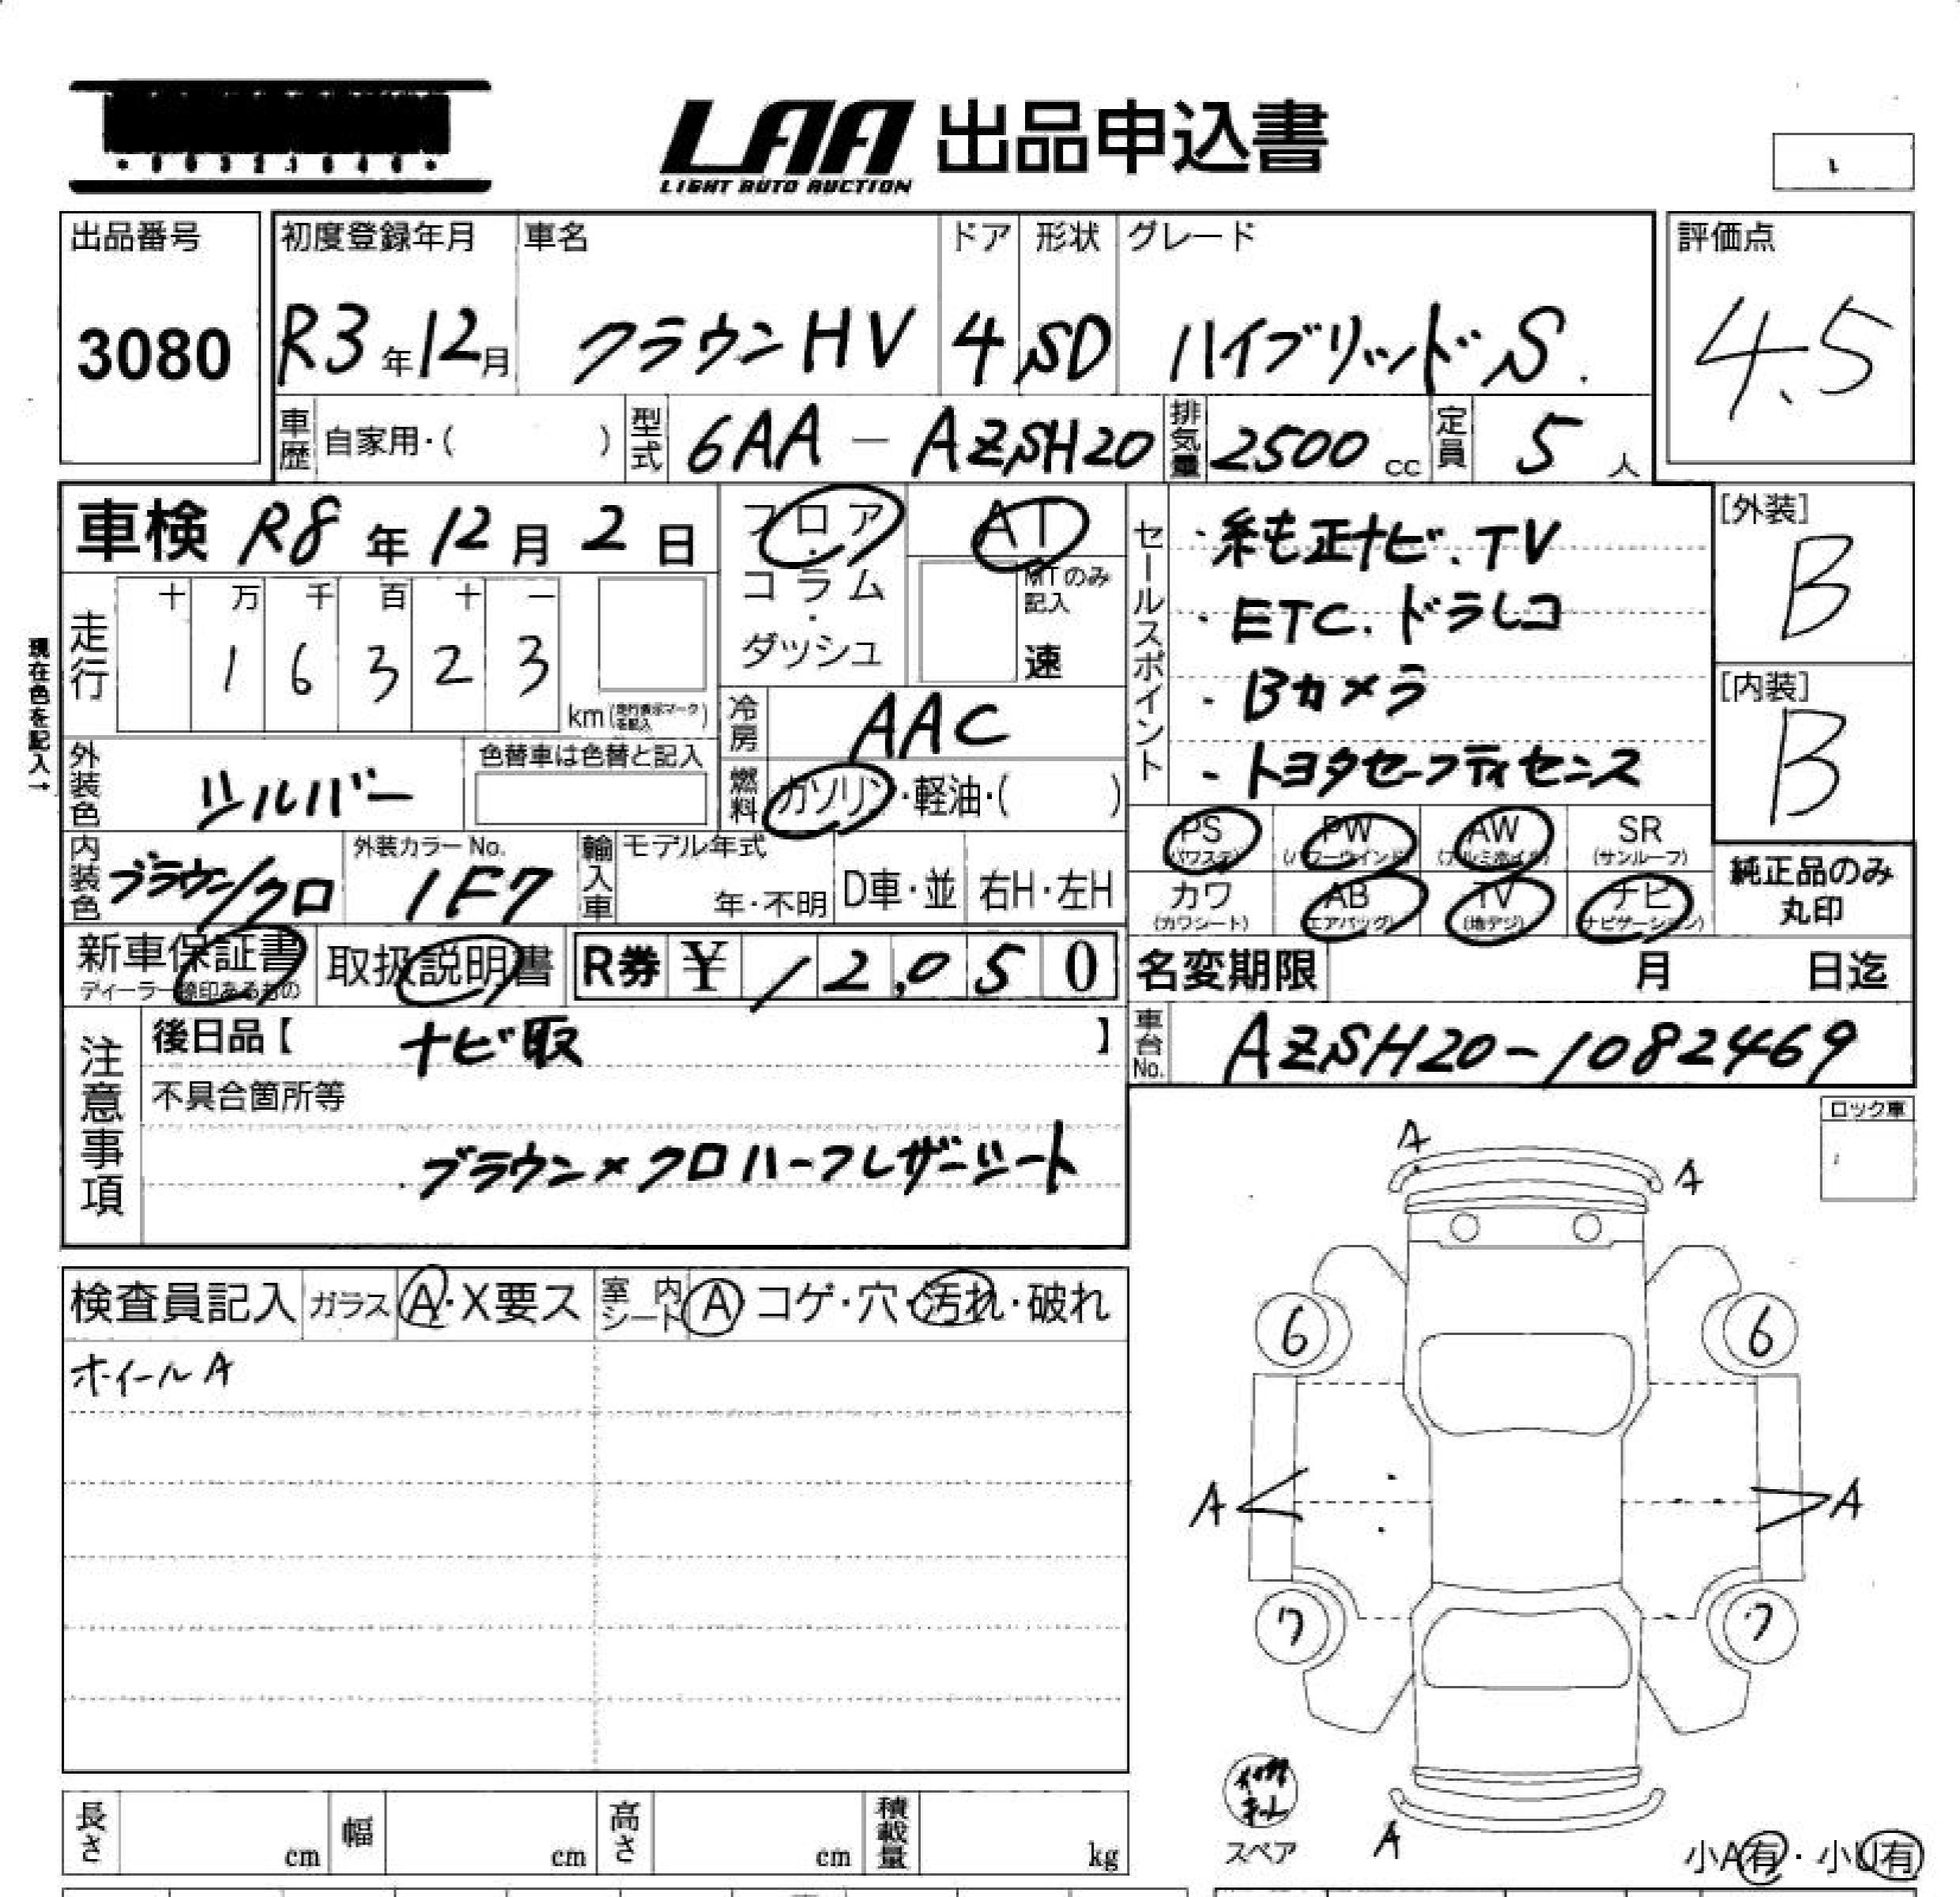 LAA 出品申込書
LIGHT AUTO AUCTION
出品番号 初度登録年月 車名 ドア 形状 グレード 評価点
3080 R3年12月 クラウンHV 4 SD ハイブリッドS. 4.5
車歴 自家用・( ) 型式 6AA-AZSH20 排気量 2500cc 定員 5人
車検 R8年12月2日 フロア・コラム・ダッシュ AT
MTのみ記入 速
セールスポイント
・純正ナビ.TV
・ETC.ドラレコ
・Bカメラ
・トヨタセーフティセンス
[外装] B
[内装] B
現在色を記入→
走行 十 万 千 百 十 一
1 6 3 2 3 km(走行表示マークを記入)
冷房 AAC
外装色 シルバー 色替車は色替と記入
燃料 ガソリン・軽油・( )
PS (パワステ) PW (パワーウインド) AW (アルミホイル) SR (サンルーフ)
カワ (カワシート) AB (エアバッグ) TV (地デジ) ナビ (ナビゲーション)
純正品のみ丸印
内装色 ブラウン/クロ 外装カラーNo. 1F7 輸入車 モデル年式 年・不明 D車・並 右H・左H
新車保証書 取扱説明書 R券 ¥ 12,050
名変期限 月 日迄
注意事項 後日品【 ナビ取 】
車台No. AZSH20-1082469
不具合箇所等
ブラウン×クロハーフレザーシート
ロック車
A
A
検査員記入 ガラス A・X要ス 室内シート A コゲ・穴・汚れ・破れ
ホイールA
6 6
A A
7 7
スペア
A
小A有・小U有
長さ cm 幅 cm 高さ cm 積載量 kg